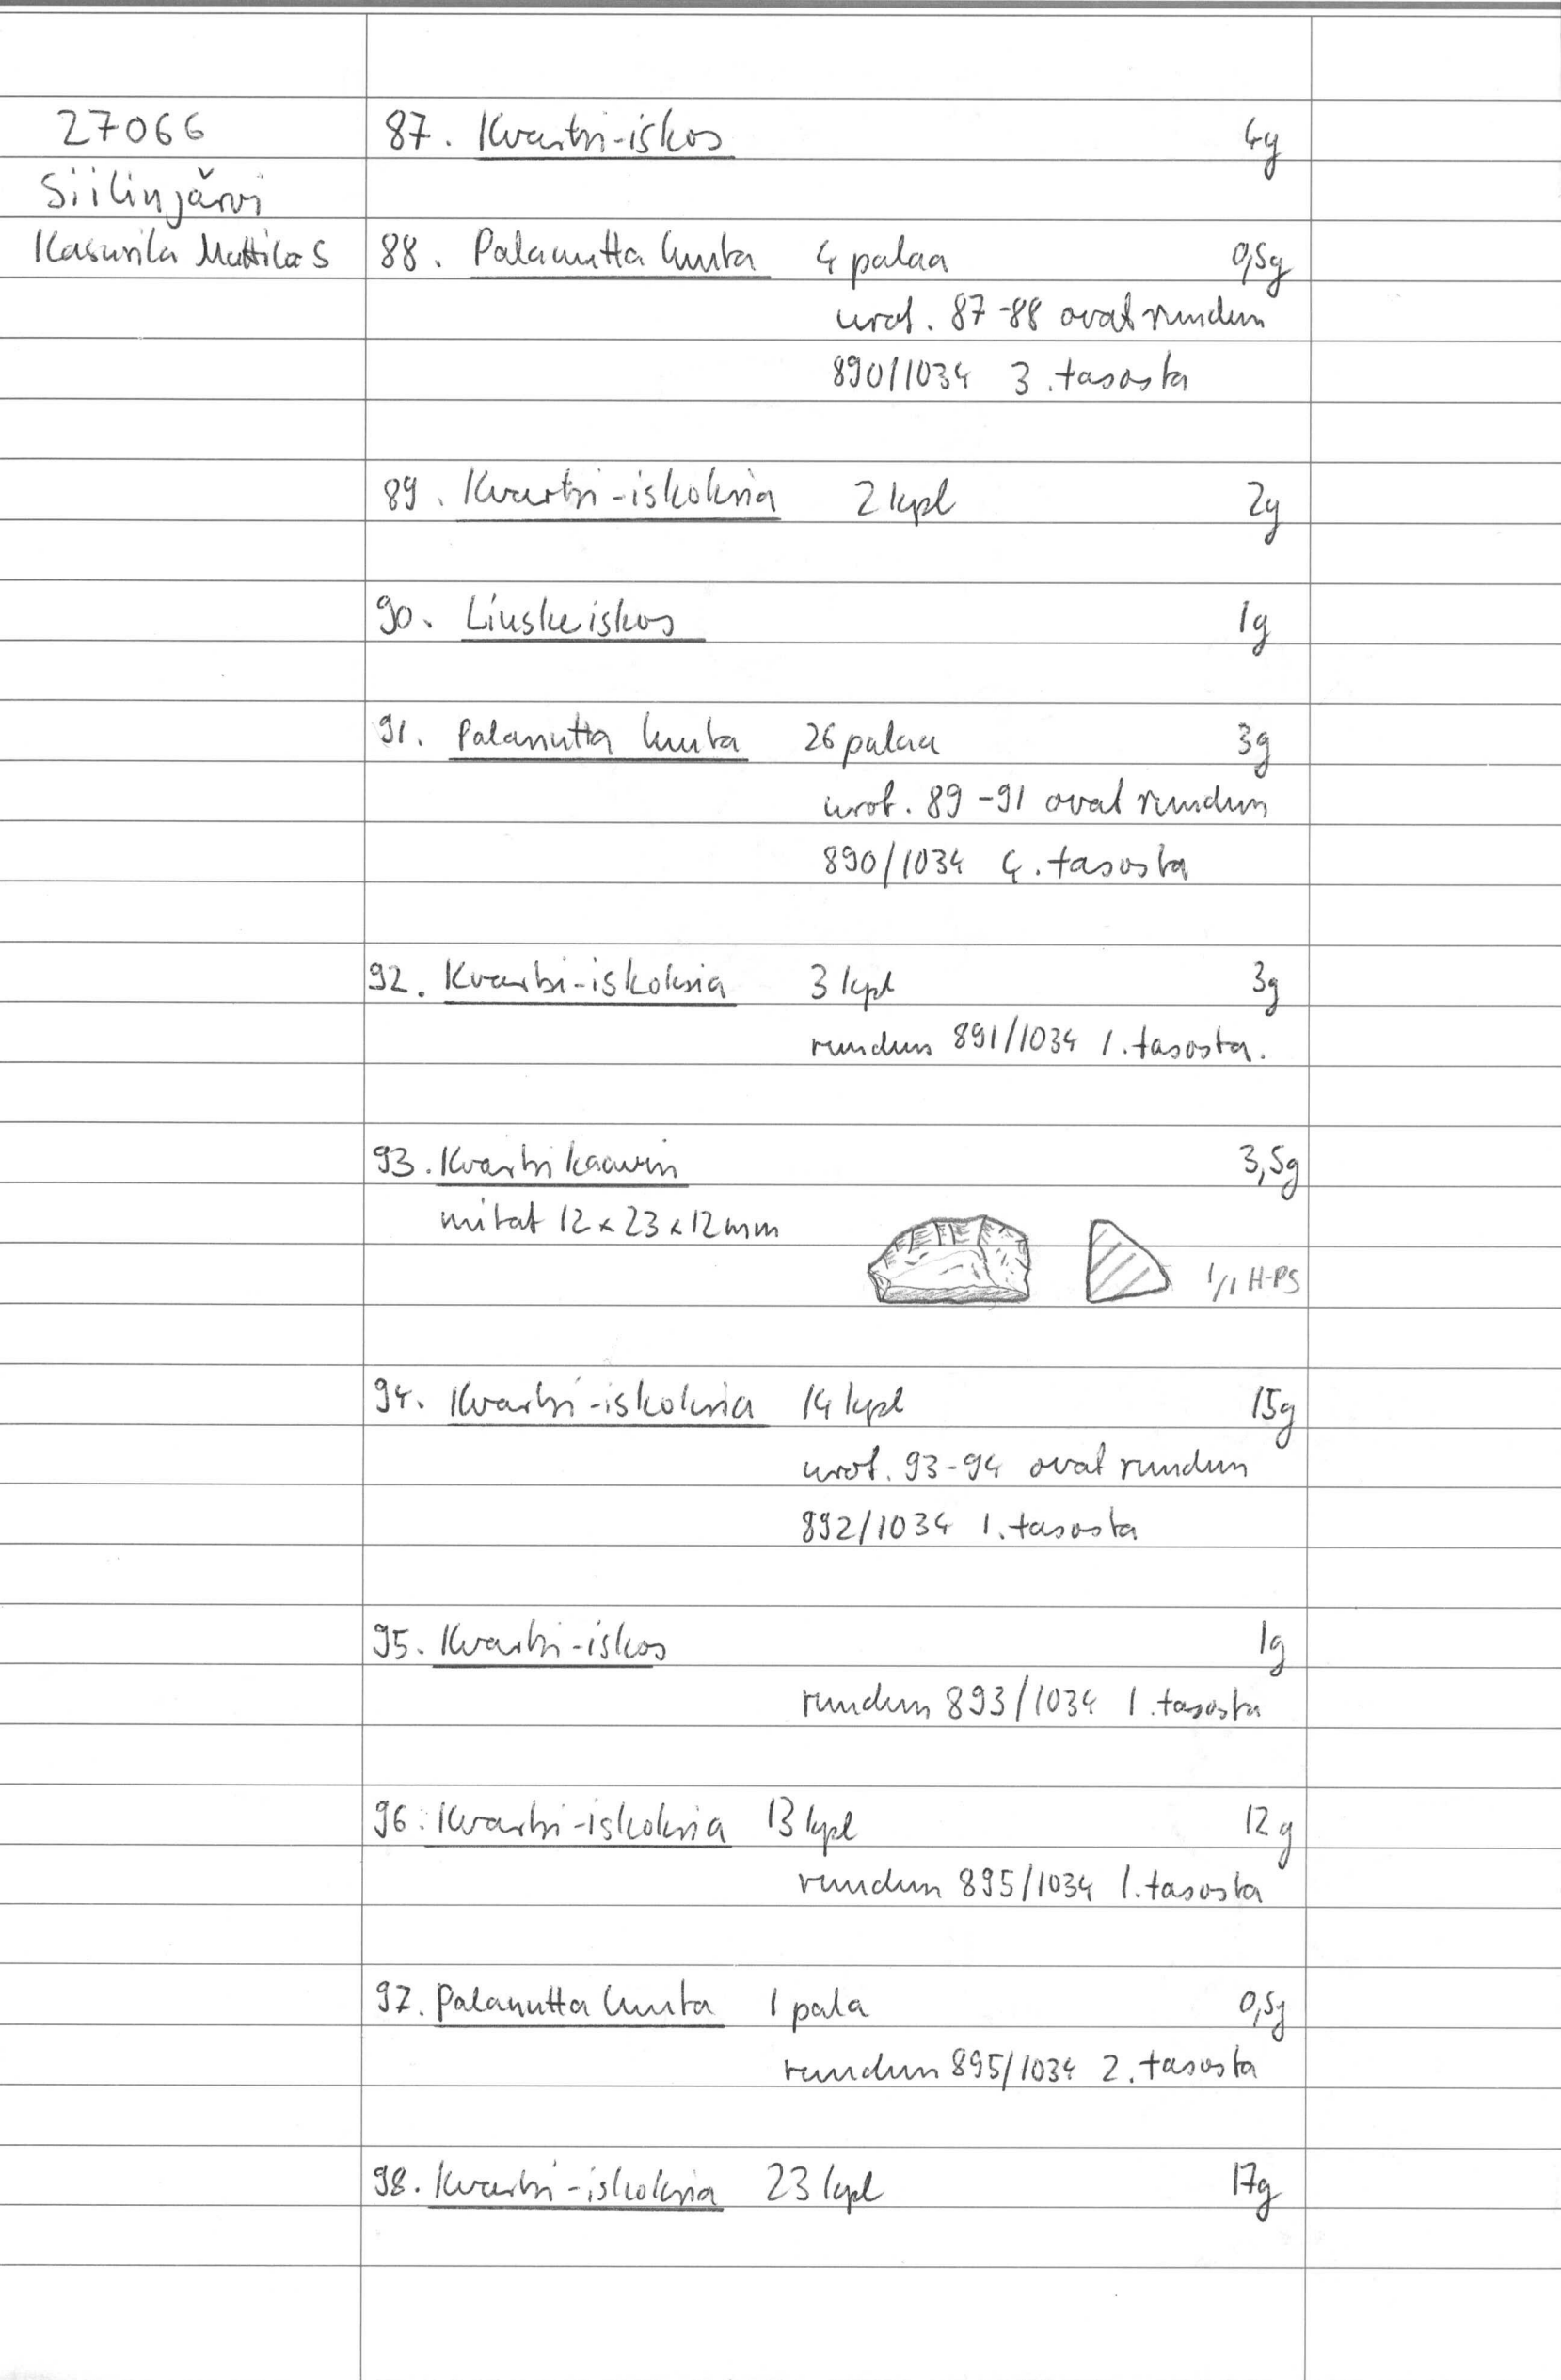 27066
Siilinjärvi
Kasurila Mattila S
87. Kvartsi-iskos 4g
88. Palanutta luuta 4 palaa 0,5g
urot. 87-88 ovat ruudun
890/1034 3. tasosta
89. Kvartsi-iskoksia 2 kpl 2g
90. Liuskeiskos 1g
91. Palanutta luuta 26 palaa 3g
urot. 89-91 ovat ruudun
890/1034 4. tasosta
92. Kvartsi-iskoksia 3 kpl 3g
ruudun 891/1034 1. tasosta.
93. Kvartsikaavin 3,5g
mitat 12 x 23 x 12 mm
1/1 H-PS
94. Kvartsi-iskoksia 14 kpl 15g
urot. 93-94 ovat ruudun
892/1034 1. tasosta
95. Kvartsi-iskos 1g
ruudun 893/1034 1. tasosta
96. Kvartsi-iskoksia 13 kpl 12g
ruudun 895/1034 1. tasosta
97. Palanutta luuta 1 pala 0,5g
ruudun 895/1034 2. tasosta
98. Kvartsi-iskoksia 23 kpl 17g